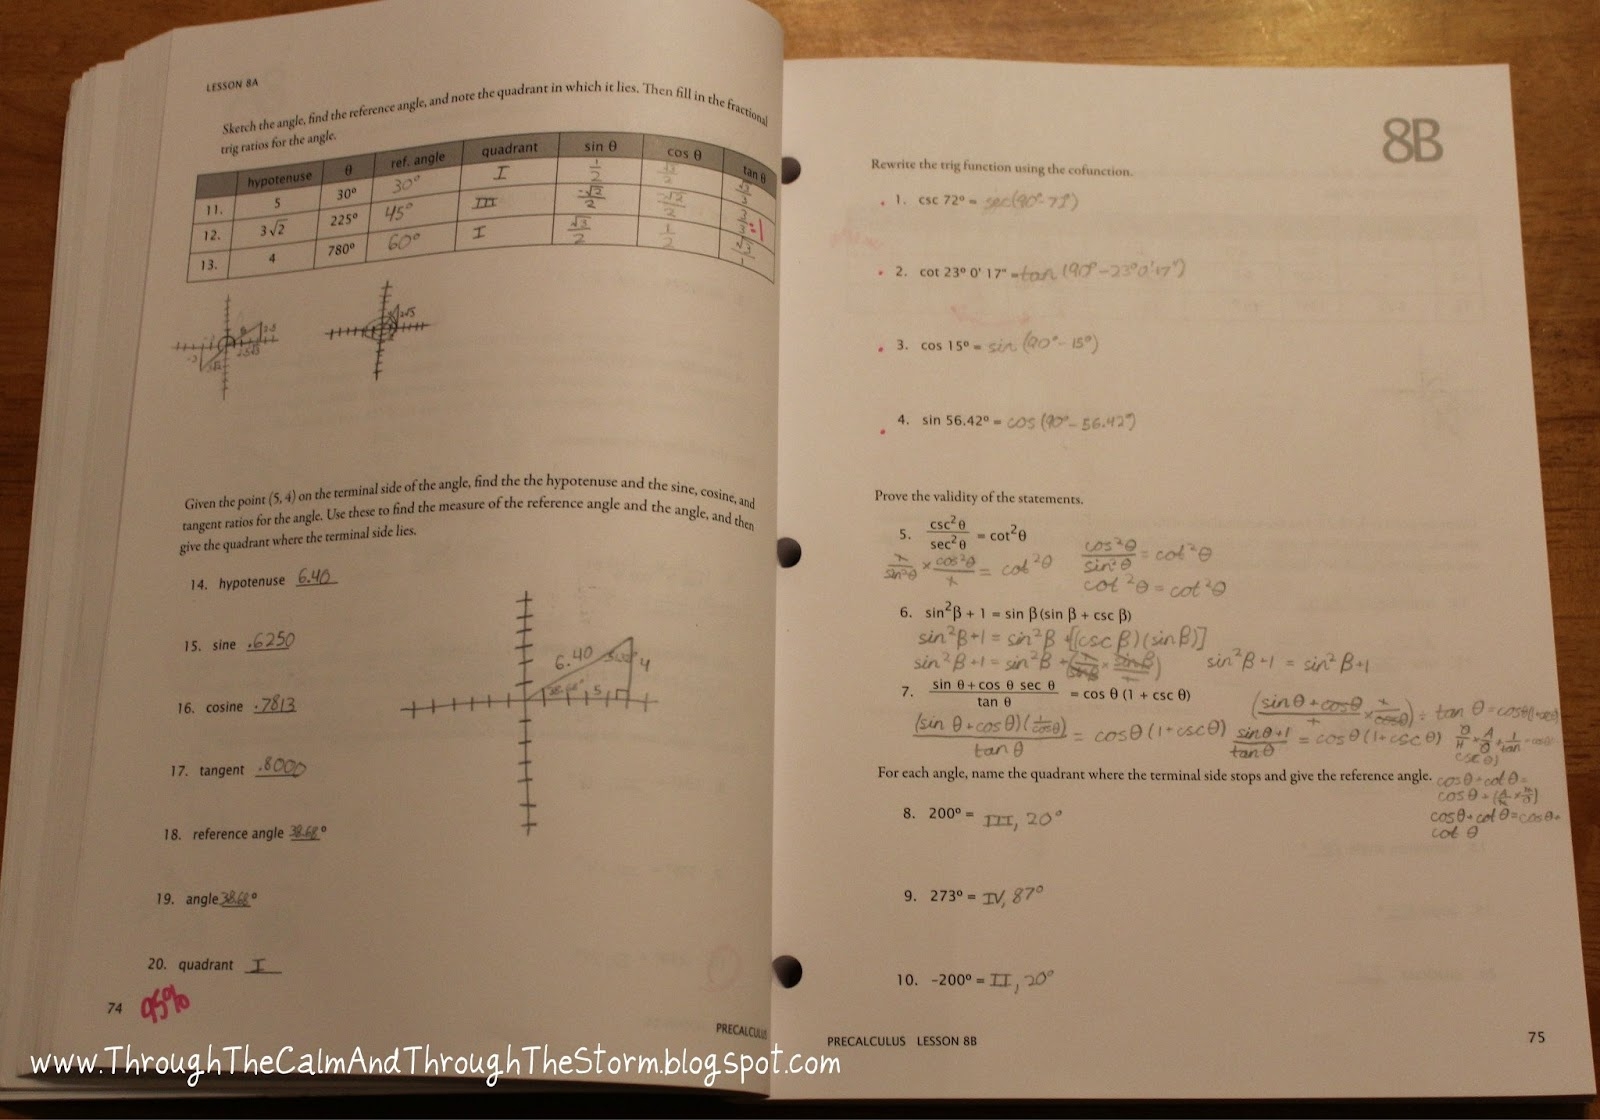 LESSON 8A
Sketch the angle, find the reference angle, and note the quadrant in which it lies. Then fill in the fractional
trig ratios for the angle.
hypotenuse θ ref. angle quadrant sin θ cos θ tan θ
11. 5 30° 30° I 1/2 √3/2 √3/3
12. 3√2 225° 45° III -√2/2 -√2/2 =1
13. 4 780° 60° I √3/2 1/2 √3/1
Given the point (5, 4) on the terminal side of the angle, find the the hypotenuse and the sine, cosine, and
tangent ratios for the angle. Use these to find the measure of the reference angle and the angle, and then
give the quadrant where the terminal side lies.
14. hypotenuse 6.40
15. sine .6250
16. cosine .7813
17. tangent .8000
18. reference angle 38.68°
19. angle 38.68°
20. quadrant I
6.40
4
5
74
95%
PRECALCULUS
8B
Rewrite the trig function using the cofunction.
1. csc 72° = sec(90°-72°)
2. cot 23° 0' 17" = tan (90°-23°0'17")
3. cos 15° = sin (90°-15°)
4. sin 56.42° = cos (90°-56.42°)
Prove the validity of the statements.
5. csc²θ/sec²θ = cot²θ
1/sin²θ × cos²θ/1 = cot²θ
cos²θ/sin²θ = cot²θ
cot²θ = cot²θ
6. sin²β + 1 = sin β(sin β + csc β)
sin²β+1 = sin²β +[(csc β)(sin β)]
sin²β+1 = sin²β +(1/sinβ × sinβ/1) sin²β+1 = sin²β+1
7. sin θ+cos θ sec θ/tan θ = cos θ (1 + csc θ)
(sin θ+cosθ)(1/cosθ)/tanθ = cosθ(1+cscθ)
sinθ+1/tanθ = cosθ(1+cscθ)
For each angle, name the quadrant where the terminal side stops and give the reference angle.
cosθ+cotθ=
cosθ+cotθ=cosθ+
cot θ
8. 200° = III, 20°
9. 273° = IV, 87°
10. -200° = II, 20°
PRECALCULUS LESSON 8B
75
www.ThroughTheCalmAndThroughTheStorm.blogspot.com